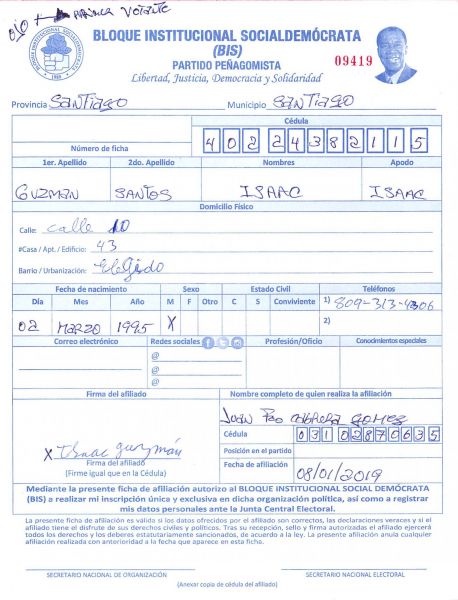 OJO PRIMER VOTANTE
BLOQUE INSTITUCIONAL SOCIALDEMÓCRATA
(BIS)
PARTIDO PEÑAGOMISTA
Libertad, Justicia, Democracia y Solidaridad
09419
Provincia SANTIAGO Municipio SANTIAGO
Cédula
Número de ficha 40224382115
1er. Apellido 2do. Apellido Nombres Apodo
GUZMAN SANTOS ISAAC ISAAC
Domicilio Físico
Calle: calle 10
#Casa / Apt. / Edificio: 43
Barrio / Urbanización: El Ejido
Fecha de nacimiento Sexo Estado Civil Teléfonos
Día Mes Año M F Otro C S Conviviente 1) 809-313-4306
02 MARZO 1995 X 2)
Correo electrónico Redes sociales Profesión/Oficio Conocimientos especiales
@
@
@
Firma del afiliado Nombre completo de quien realiza la afiliación
JUAN CABRERA GOMEZ
Cédula 03102870635
X Isaac guzmán
Firma del afiliado
(Firme igual que en la Cédula)
Posición en el partido
Fecha de afiliación 08/01/2019
Mediante la presente ficha de afiliación autorizo al BLOQUE INSTITUCIONAL SOCIAL DEMÓCRATA
(BIS) a realizar mi inscripción única y exclusiva en dicha organización política, así como a registrar
mis datos personales ante la Junta Central Electoral.
La presente ficha de afiliación es válida si los datos ofrecidos por el afiliado son correctos, las declaraciones veraces y si el
afiliado tiene el disfrute de sus derechos civiles y políticos. Tras su recepción, sello y firma autorizadas el afiliado ejercerá
todos los derechos y los deberes estatutariamente sancionados, de acuerdo a la ley. La presente afiliación anula cualquier
afiliación realizada con antorioridad a la fecha que aparece en esta ficha.
SECRETARIO NACIONAL DE ORGANIZACIÓN SECRETARIO NACIONAL ELECTORAL
(Anexar copia de cédula del afiliado)